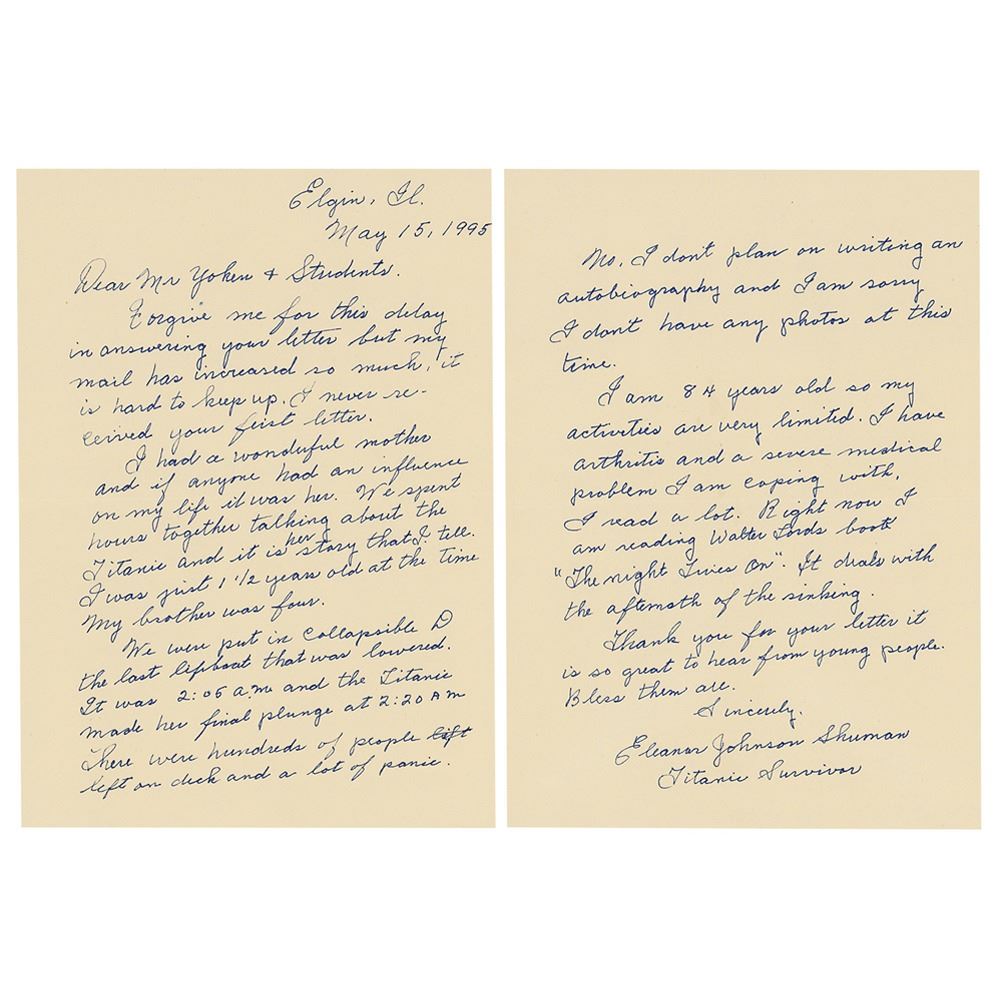 Elgin, Il.
May 15, 1995
Dear Mr Yoken & Students.
Forgive me for this delay
in answering your letter but my
mail has increased so much, it
is hard to keep up. I never re-
ceived your first letter.
I had a wonderful mother
and if anyone had an influence
on my life it was her. We spent
hours together talking about the
Titanic and it is her story that I tell.
I was just 1 1/2 years old at the time
My brother was four.
We were put in Collapsible D
the last lifeboat that was lowered.
It was 2:05 a.m. and the Titanic
made her final plunge at 2:20 AM
There were hundreds of people
left on deck and a lot of panic.
No, I don't plan on writing an
autobiography and I am sorry
I don't have any photos at this
time.
I am 84 years old so my
activities are very limited. I have
arthritis and a severe medical
problem I am coping with.
I read a lot. Right now I
am reading Walter Lords book
"The night Lives On". It deals with
the aftermath of the sinking.
Thank you for your letter it
is so great to hear from young people.
Bless them all.
Sincerely,
Eleanor Johnson Shuman
Titanic Survivor